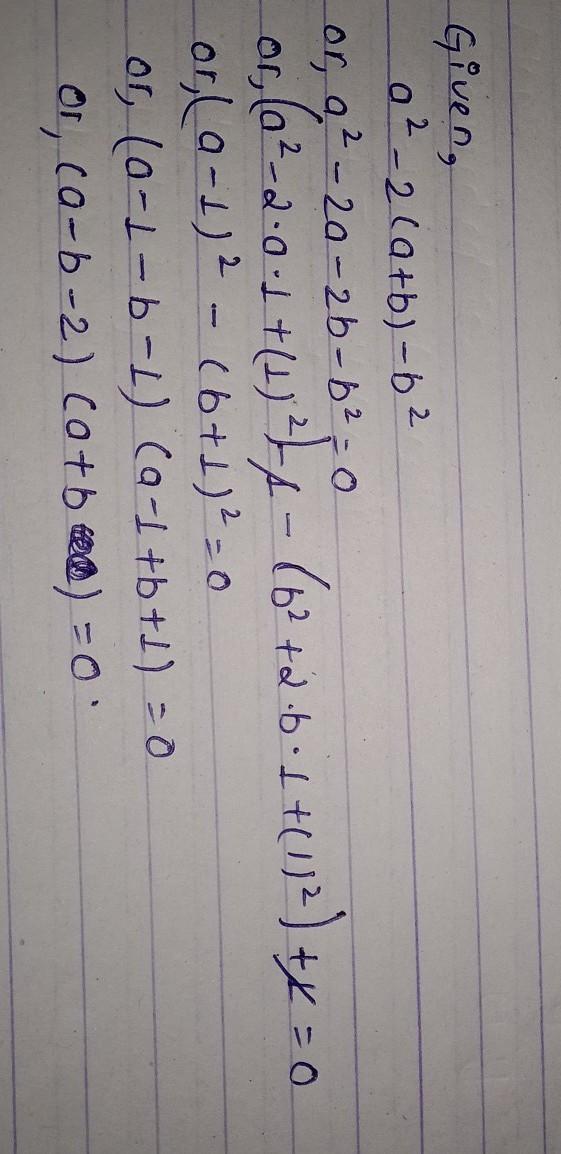 Given,
a² - 2(a+b) - b²
or, a² - 2a - 2b - b² = 0
or, (a² - 2·a·1 + (1)²) - 1 - (b² + 2·b·1 + (1)²) + 1 = 0
or, (a-1)² - (b+1)² = 0
or, (a-1-b-1) (a-1+b+1) = 0
or, (a-b-2) (a+b) = 0.